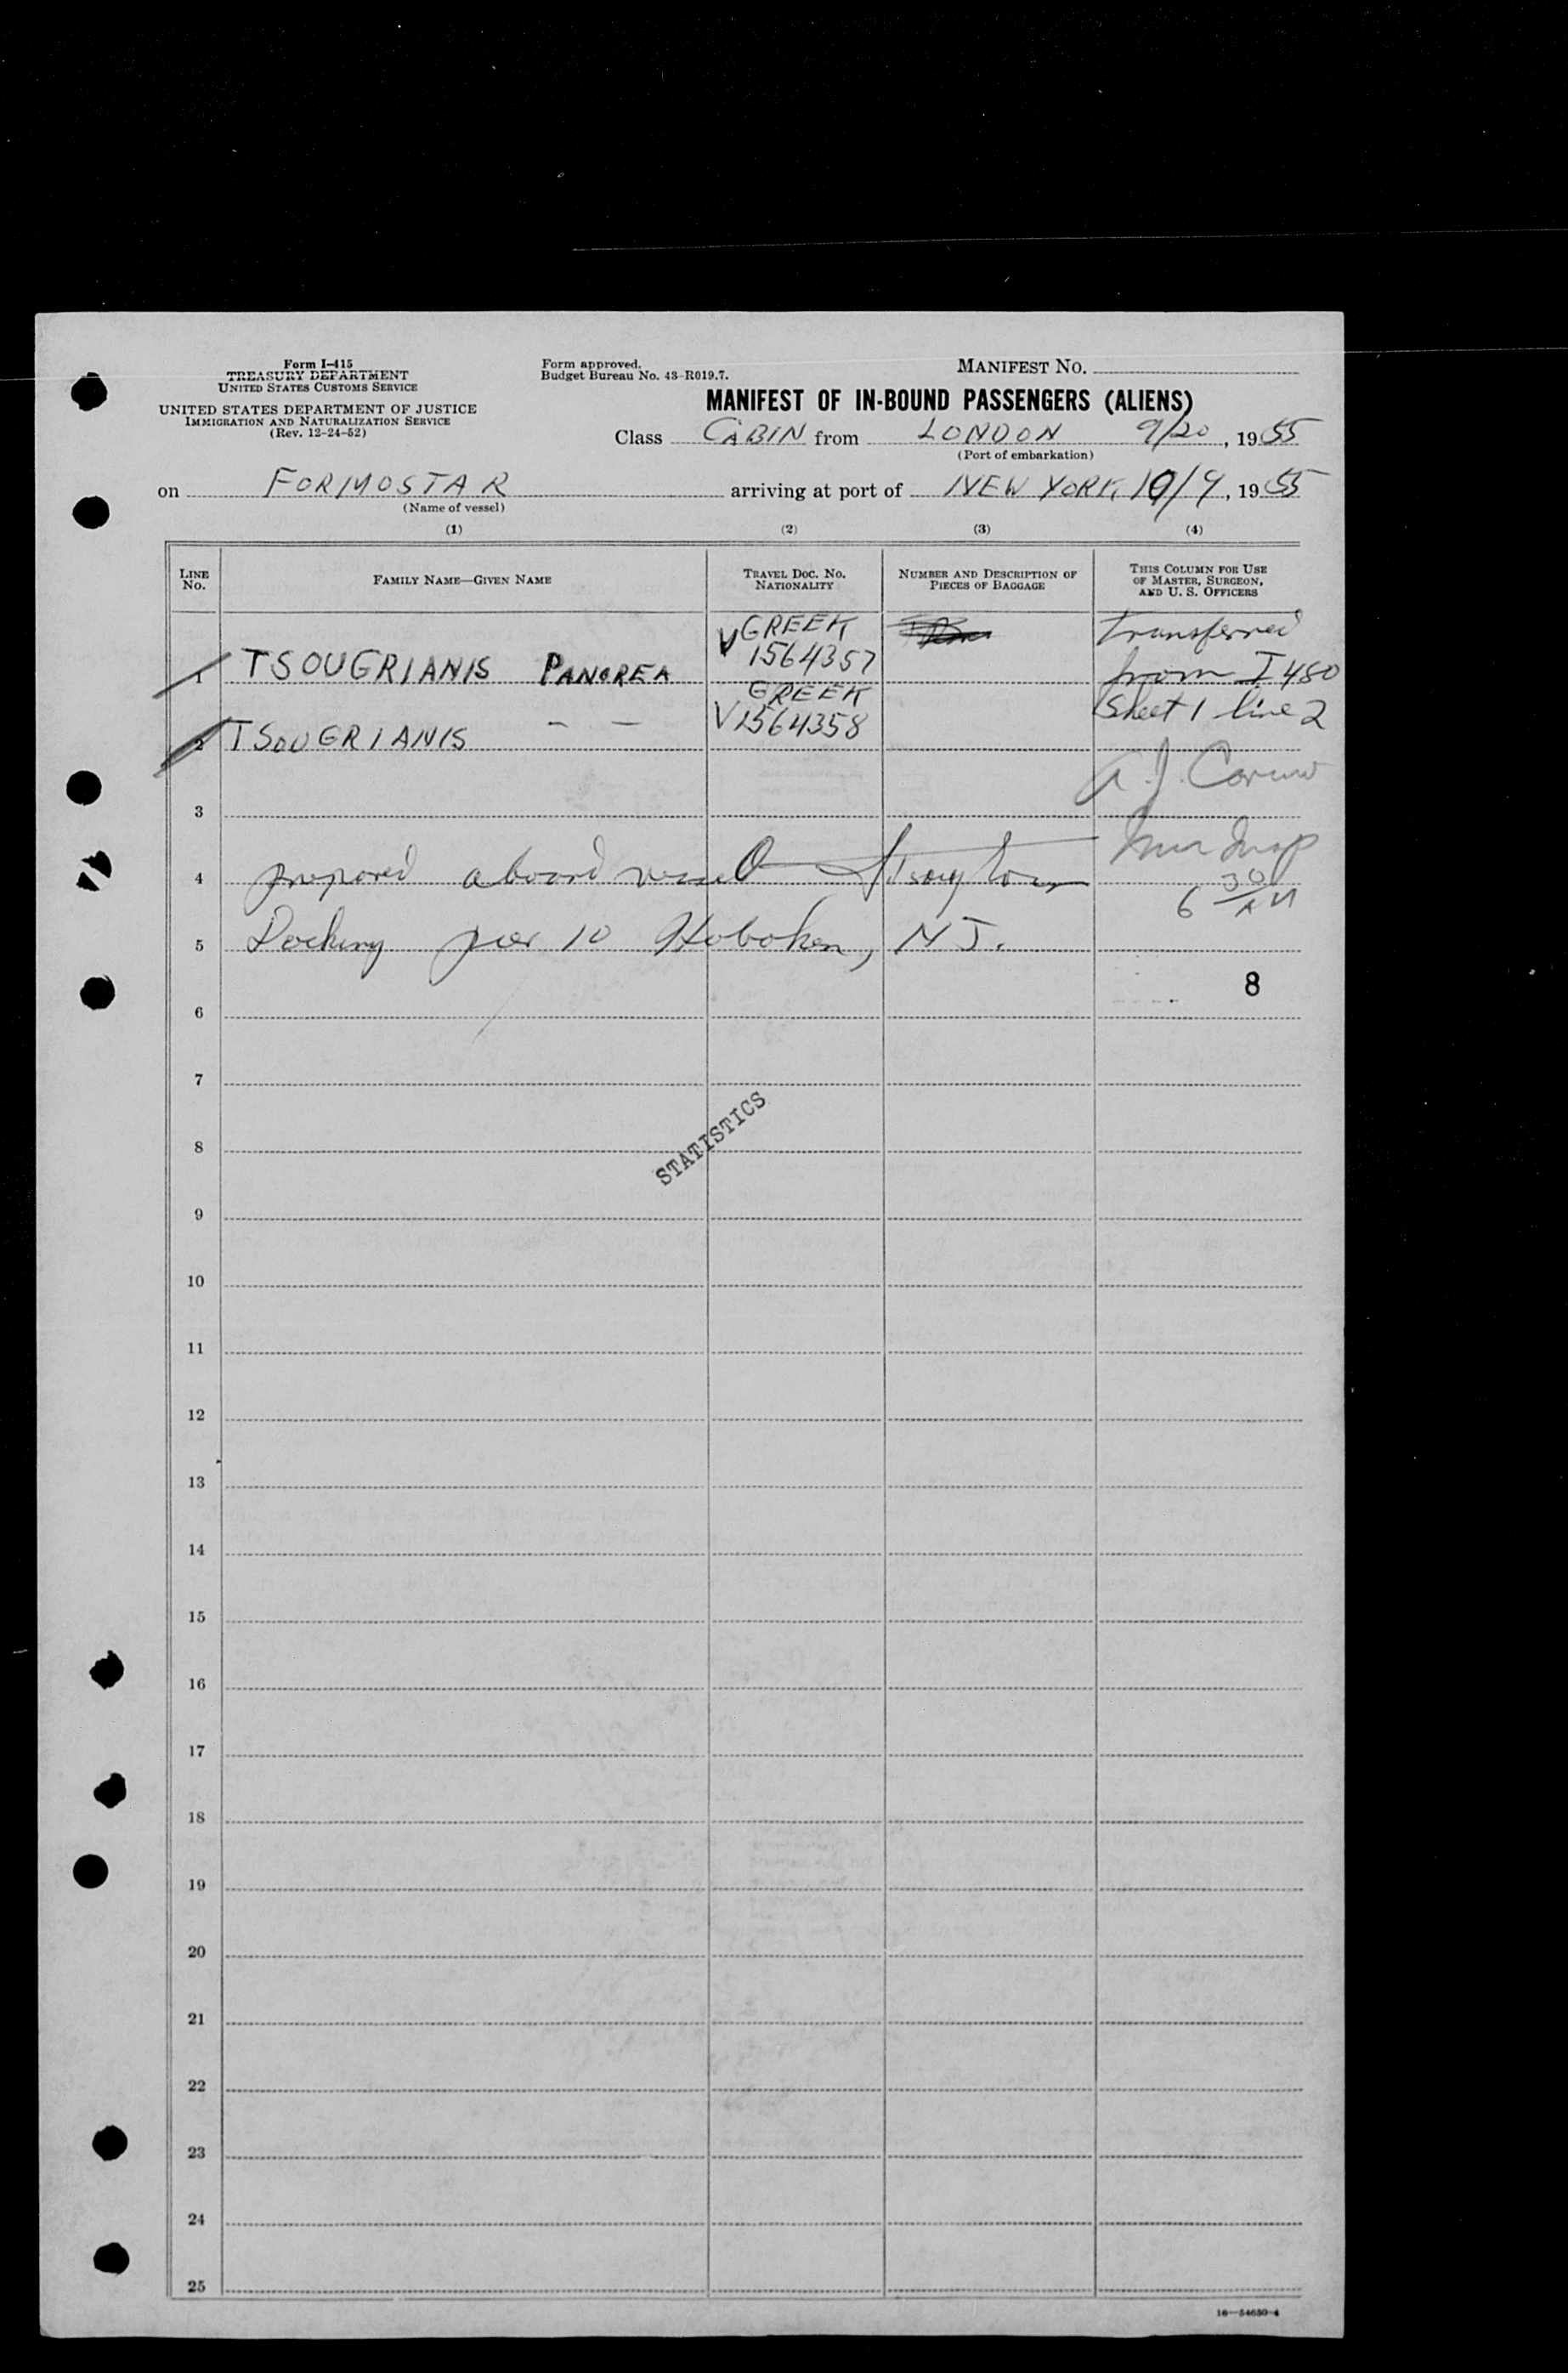 Form I-415
TREASURY DEPARTMENT
UNITED STATES CUSTOMS SERVICE
UNITED STATES DEPARTMENT OF JUSTICE
IMMIGRATION AND NATURALIZATION SERVICE
(Rev. 12-24-52)
Form approved.
Budget Bureau No. 43-R019.7.
MANIFEST NO.
MANIFEST OF IN-BOUND PASSENGERS (ALIENS)
Class CABIN from LONDON 9/20, 1955
(Port of embarkation)
on FORMOSTAR arriving at port of NEW YORK, 10/9, 1955
(Name of vessel)
(1) (2) (3) (4)
LINE NO. FAMILY NAME—GIVEN NAME TRAVEL DOC. NO. NATIONALITY NUMBER AND DESCRIPTION OF PIECES OF BAGGAGE THIS COLUMN FOR USE OF MASTER, SURGEON, AND U. S. OFFICERS
GREEK transferred
1 TSOUGRIANIS PANOREA V 1564357 from I 480
GREEK Sheet 1 line 2
2 TSOUGRIANIS - - V 1564358
A. J.
3
Imm Insp
4 prepared aboard vessel
6 30 AM
5 Docking pier 10 Hoboken, N J.
8
6
7
STATISTICS
8
9
10
11
12
13
14
15
16
17
18
19
20
21
22
23
24
25
16—54650-4